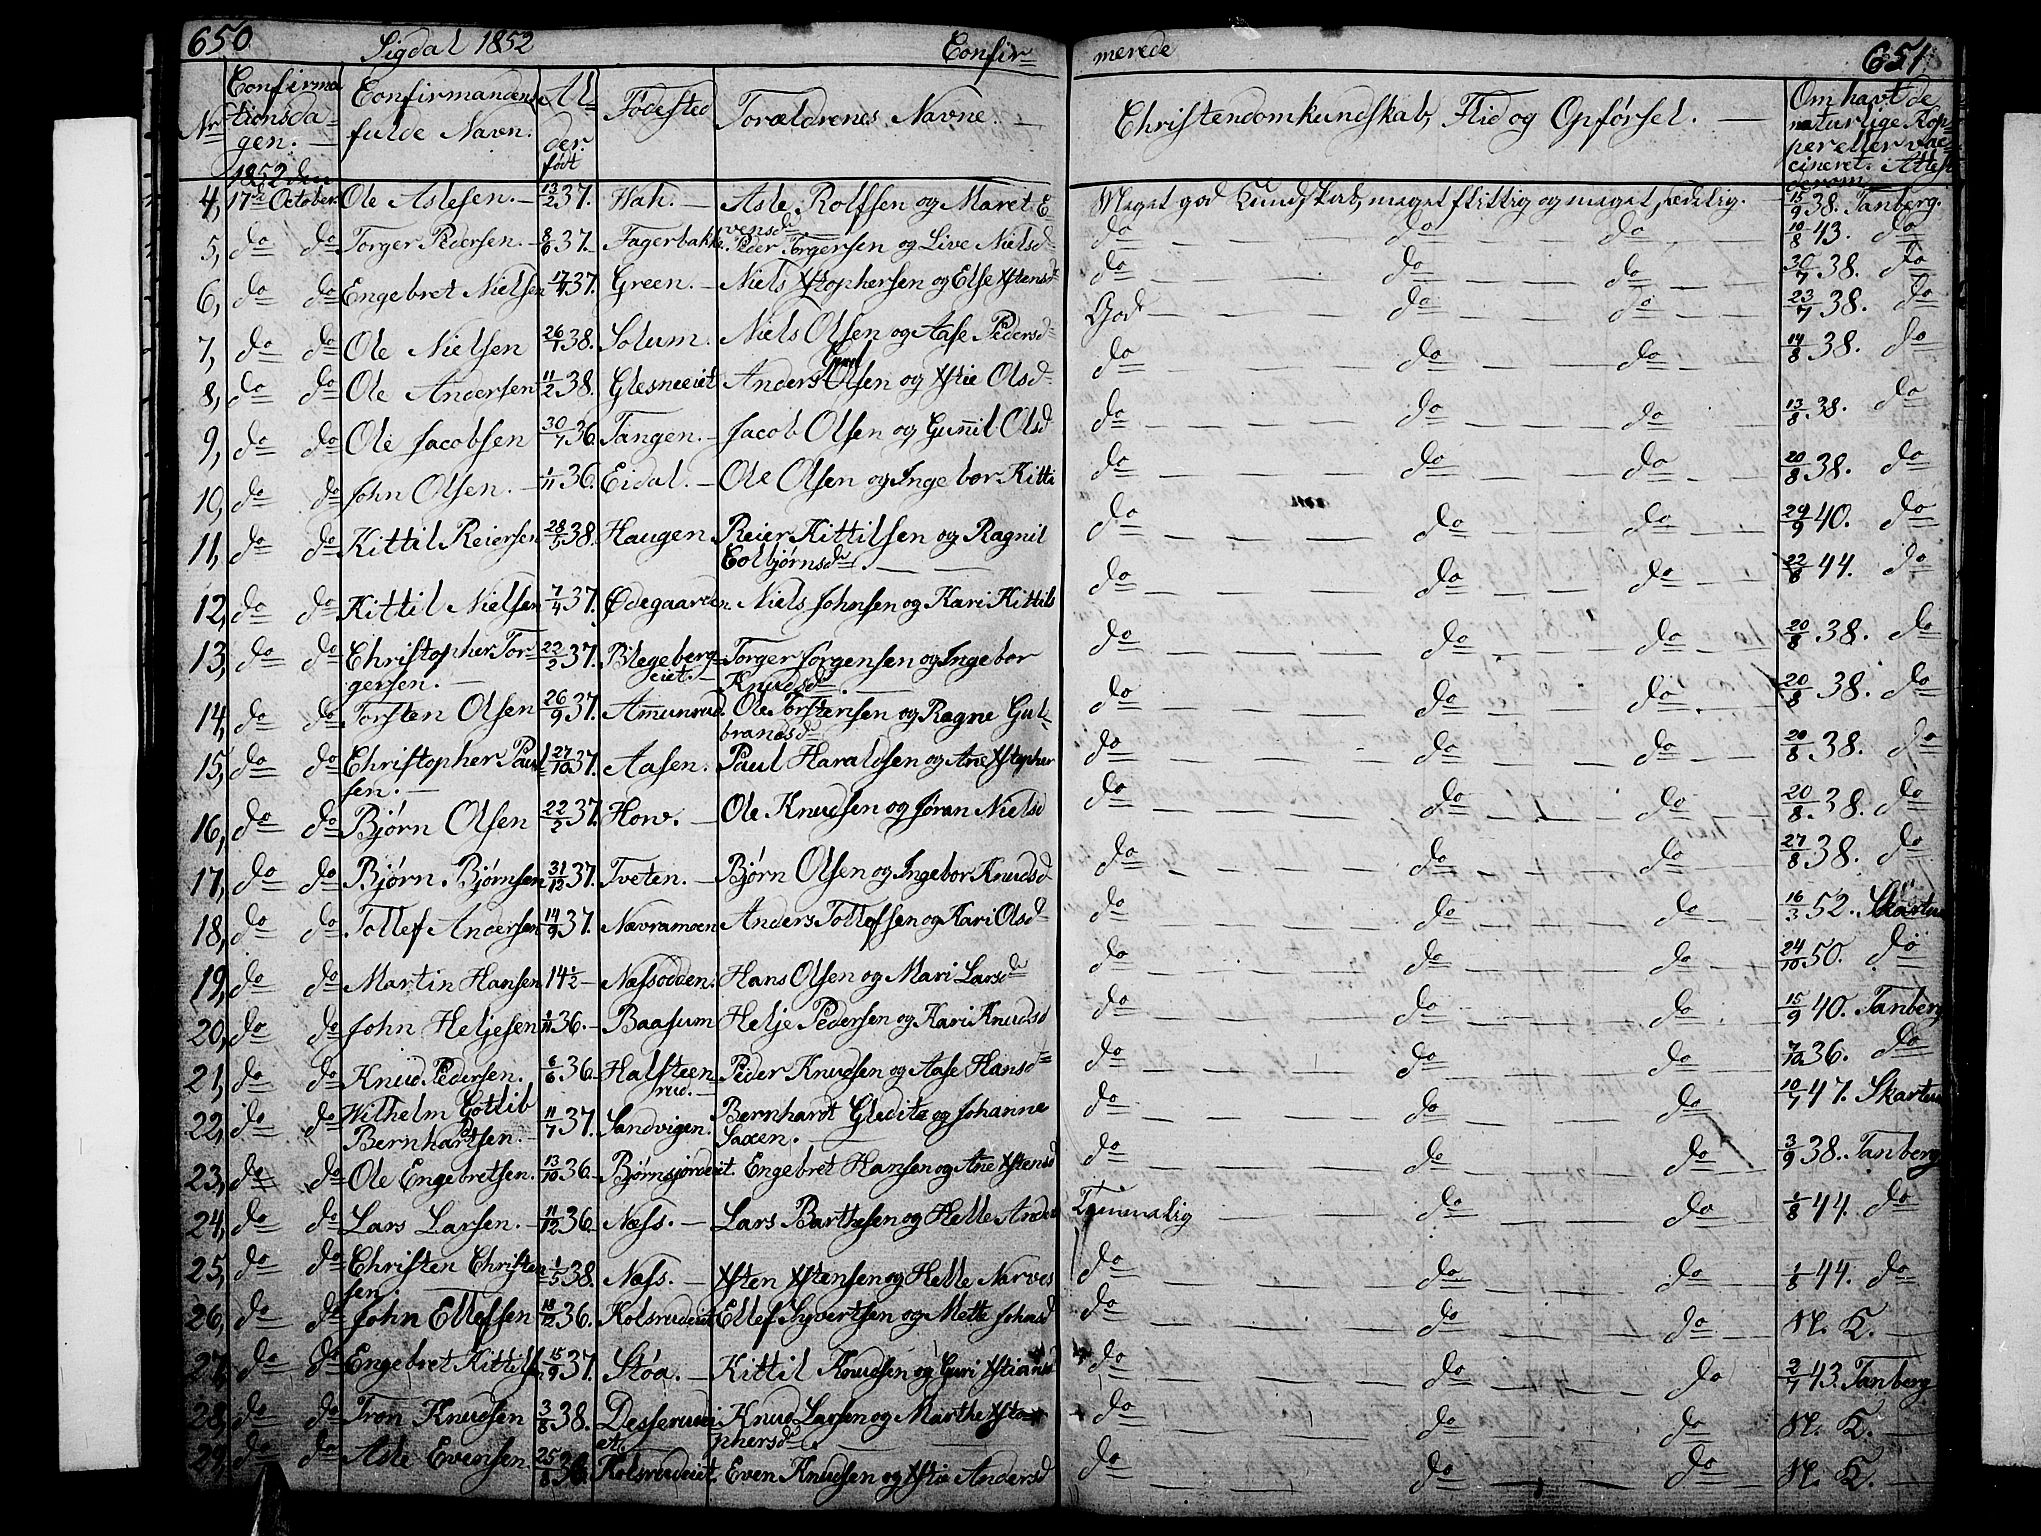 650 Sigdal 1852 Confir- merede 651
Nr Confirma tionsda- gen. 1852 den Confirmandens fulde Navn. Al- der. født Fødested Forældrenes Navne. Christendomkundskab, Flid og Opførsel. Om havt de naturlige Kop- per eller vac- cineret. Attest derom
4, 17de October Ole Aslesen. 13/2 37. Hah. Asle Rolfsen og Maret E- Meget god Kundskab, meget flittig og meget sædelig. 15/9 38. Tanberg.
vensd
5, do do Torger Pedersen. 8/6 37. Fagerbakke. Peder Torgersen og Live Nielsd do do do 10/8 43. do
6, do do Engebret Nielsen 17/4 37. Green. Niels Xstophersen og Else Xstensd do do do 30/7 38. do
7, do do Ole Nielsen 26/1 38. Solum. Niels Olsen og Aase Pedersd God do do 23/7 38. do
8, do do Ole Andersen 11/2 38. Glesneeiet Anders Olsen og Xstie Olsd do do do 14/8 38. do
9, do do Ole Jacobsen 30/7 36 Tangen. Jacob Olsen og Gunnil Olsd do do do 13/8 38. do
10, do do John Olsen. 1/11 36. Eidal. Ole Olsen og Ingebor Kitti do do do 20/8 38. do
11, do do Kittil Reiersen 28/5 38. Haugen Reier Kittilsen og Ragnil do do do 29/9 40. do
Colbjørnsdr.
12, do do Kittil Nielsen 7/4 37. Ødegaarden Niels Johnsen og Kari Kittils do do do 22/8 44. do
13, do do Christopher Tor- 22/2 37. Blegeberg- Torger Jörgensen og Ingebor do do do 20/8 38. do
gersen. eiet. Knudsd.
14, do do Torsten Olsen 26/9 37. Amunrud. Ole Torstensen og Ragne Gul- do do do 20/8 38. do
brandsd
15, do do Christopher Paul 27/10 37. Aasen. Paul Haraldsen og Ane Xstopher do do do 20/8 38. do
sen.
16, do do Bjørn Olsen 22/2 37. How. Ole Knudsen og Jøran Nielsd do do do 20/8 38. do
17, do do Bjørn Bjørnsen 31/12 37. Tveten. Bjørn Olsen og Ingebor Knudsd do do do 27/8 38. do
18, do do Tollef Andersen 14/9 37. Nævramoen Anders Tollefsen og Kari Olsd do do do 16/3 52. Skartu
19, do do Martin Hansen 14 1/2 Næssodden. Hans Olsen og Mari Larsd do do do 24/10 50. do
20, do do John Heljesen 1/11 36. Baasum Helje Pedersen og Kari Knudsd do do do 15/9 40. Tanberg
21, do do Knud Pedersen. 6/6 36. Halsteen Peder Knudsen og Aase Hansd do do do 7/10 36. do
rud.
22, do do Wilhelm Gotlib 11/7 37. Sandvigen. Bernhardt Gleditz og Johanne do do do 10/7 47. Skartu
Bernhartsen. Saxen.
23, do do Ole Engebretsen. 13/10 36. Bjørnsjordeiet. Engebret Hansen og Ane Xstensd do do do 3/9 38. Tanberg
24, do do Lars Larsen. 11/12 36. Næss. Lars Barthesen og Helle Anders Temmelig do do 1/8 44. do
25, do do Christen Christen 1/5 38. Næss. Xsten Xstensen og Helle Narves do do do 1/8 44. do
sen.
26, do do John Ellefsen 18/12 36. Kolsrudeiet Ellef Syvertsen og Mette Johnsd do do do N. K.
27, do do Engebret Kittils 15/9 37. Støa. Kittil Knudsen og Guri Xstiansd do do do 2/7 43. Tanberg
28, do do Tron Knudsen 3/8 38. Desserudei Knud Larsen og Marthe Xsto- do do do N. K.
et. phersd
29, do do Asle Evensen. 25/8 36 Kolsrudeiet. Even Knudsen og Xstie Andersd do do do N. K.